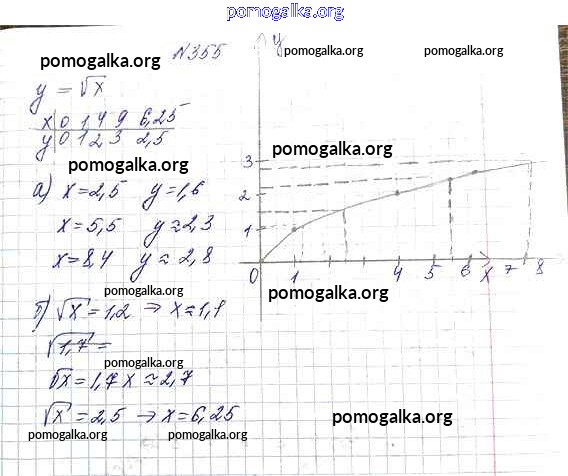 pomogalka.org
N355
pomogalka.org
pomogalka.org
pomogalka.org
y = √x
x 0 1 4 9 6,25
y 0 1 2 3 2,5
pomogalka.org
pomogalka.org
а) x=2,5 y=1,6
x=5,5 y≈2,3
x=8,4 y≈2,8
y
3
2
1
0 1 4 5 6 x 7 8
pomogalka.org
pomogalka.org
б) √x=1,2 → x≈1,1
√1,7 =
pomogalka.org
√x=1,7 x≈2,7
√x=2,5 → x=6,25
pomogalka.org
pomogalka.org
pomogalka.org